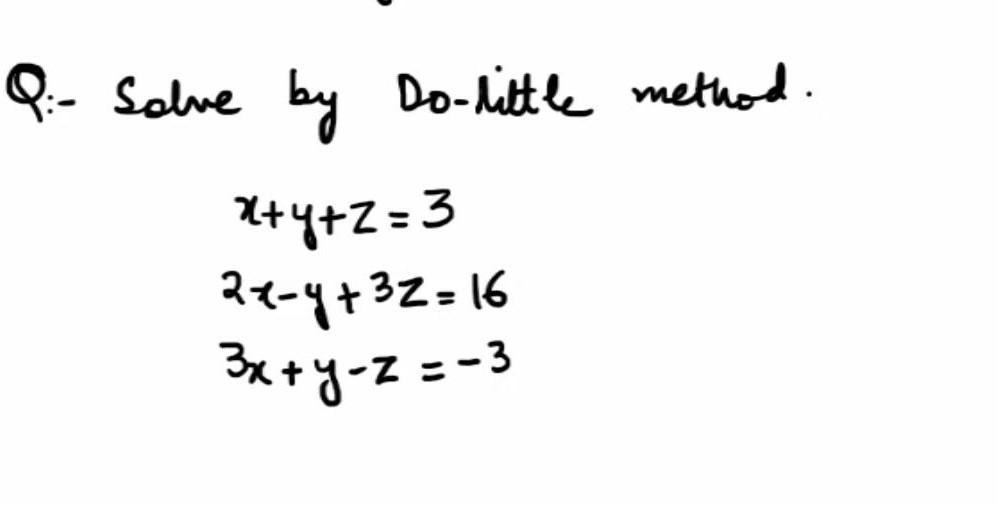 Q:- Solve by Do-little method.
x+y+z=3
2x-y+3z=16
3x+y-z=-3